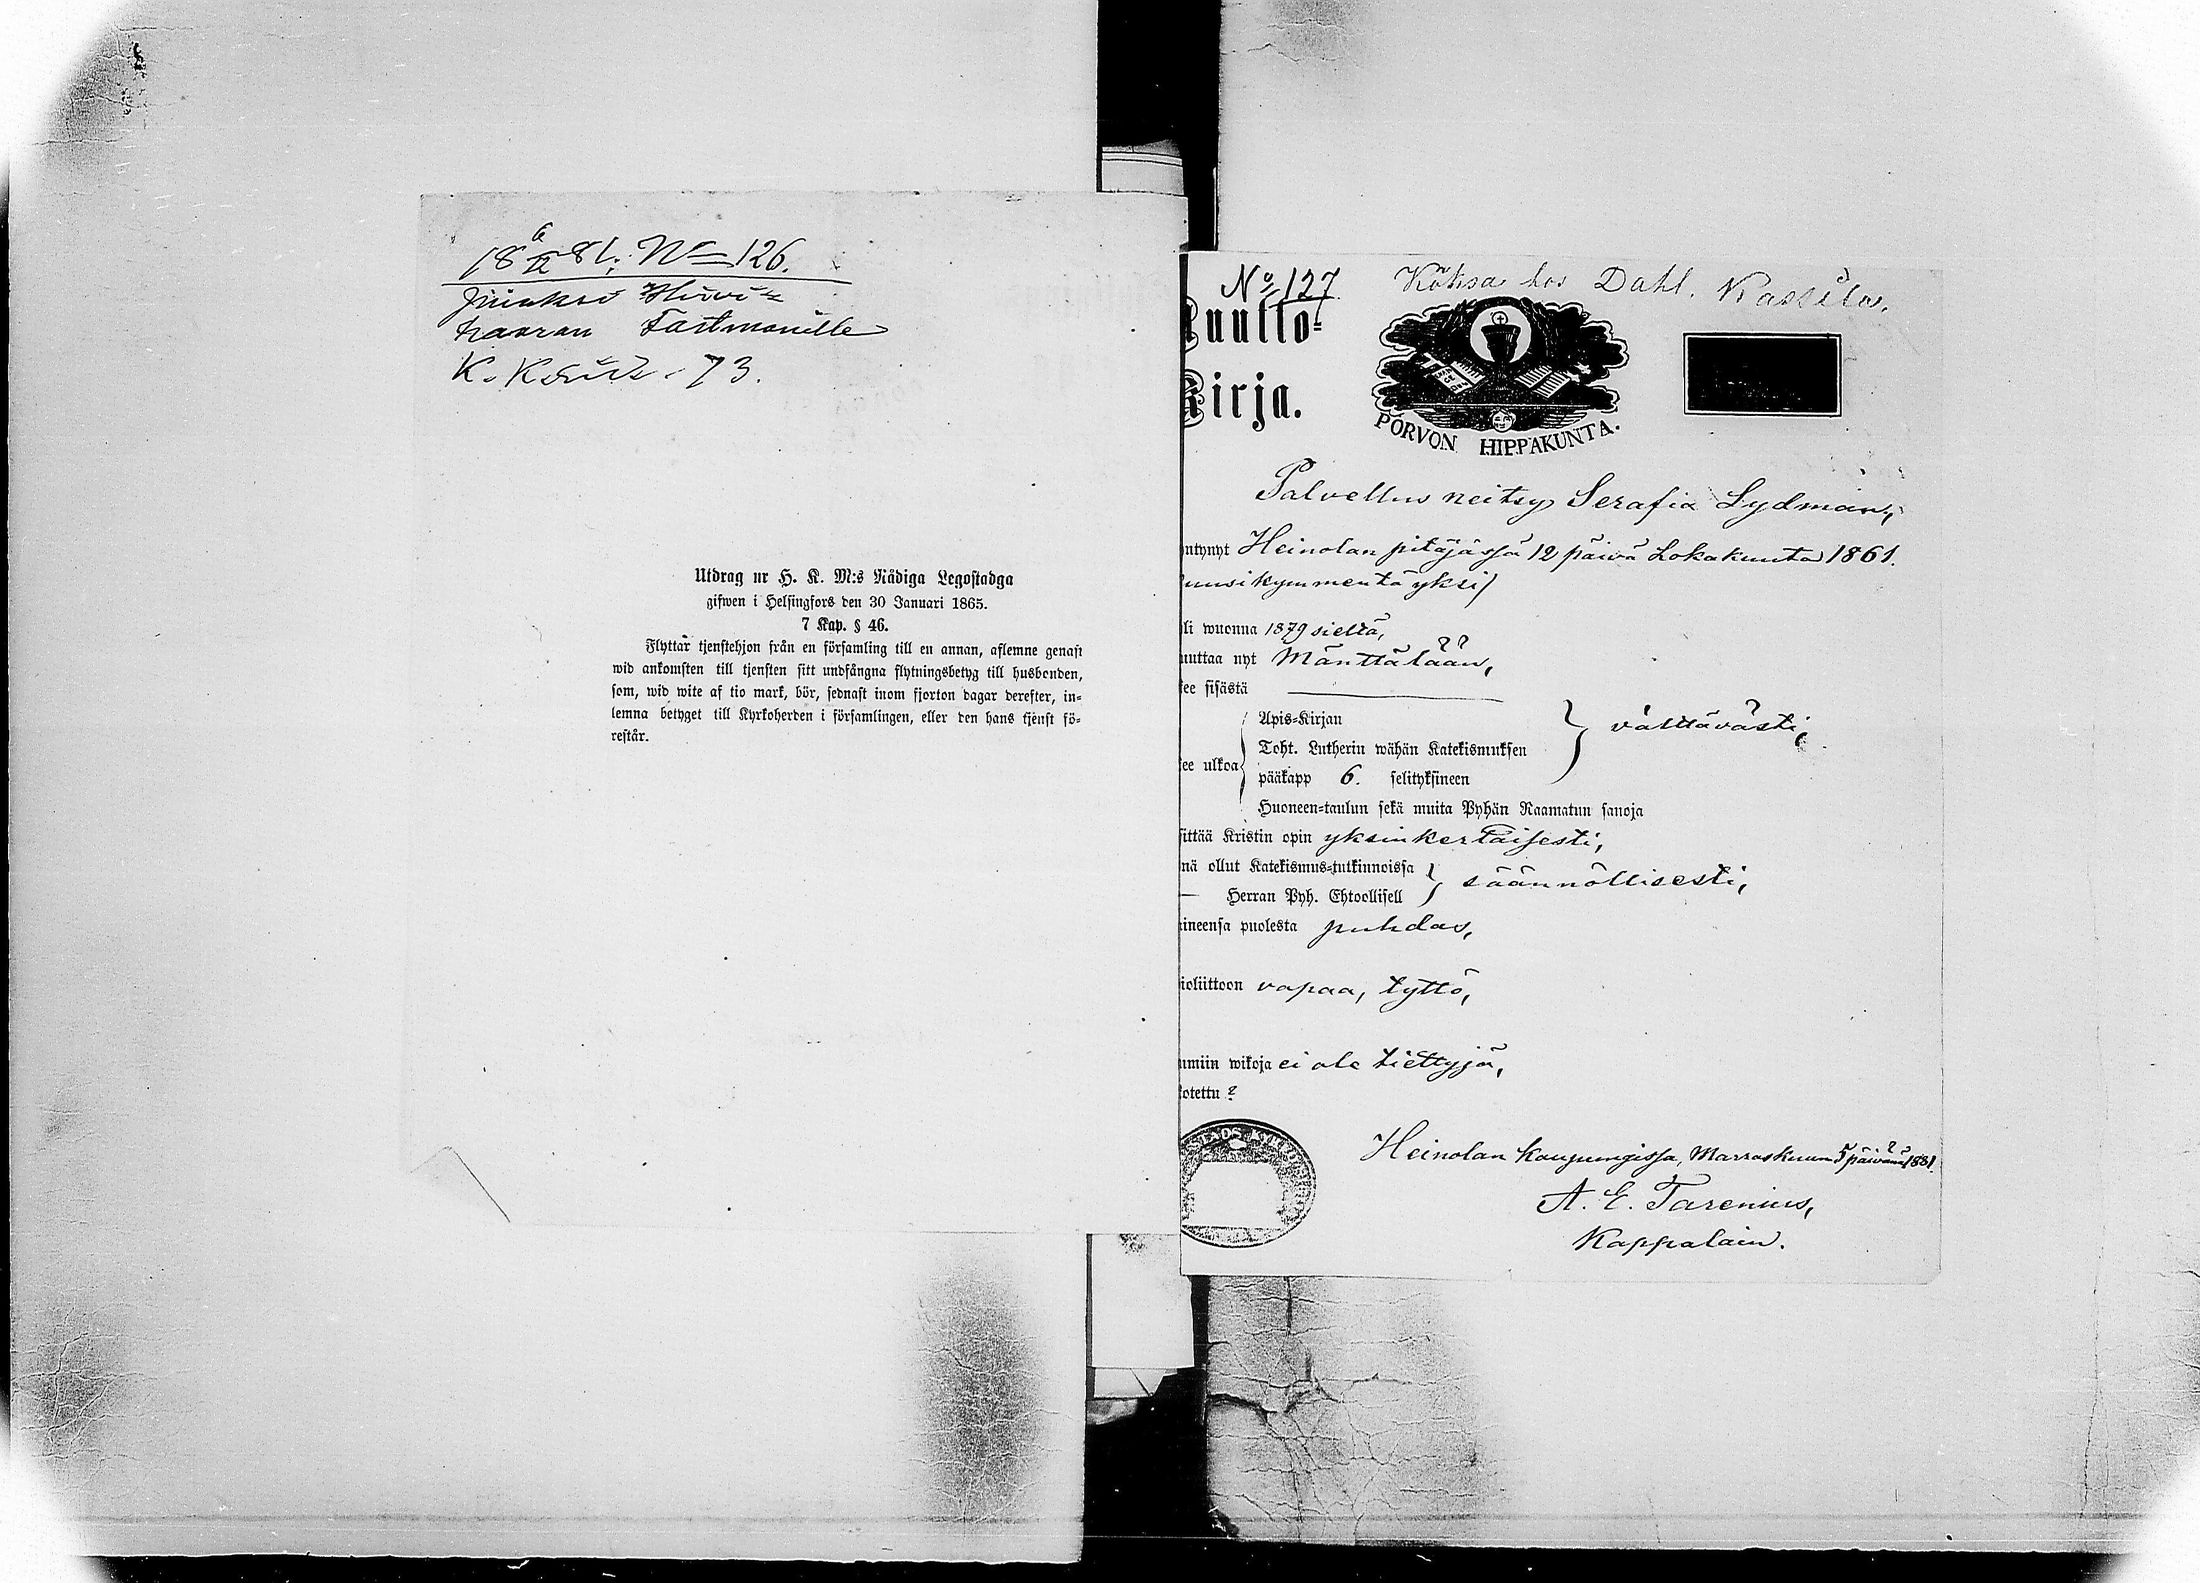 18 6/12 81; No 126.
herran Tastmanille
73.
Utdrag ur H. K. M:s Nådiga Legostadga
gifwen i Helsingfors den 30 Januari 1865.
7 Kap. § 46.
Flyttar tjenstehjon från en församling till en annan, aflemne genast
wid ankomsten till tjensten sitt undfångna flytningsbetyg till husbonden,
som, wid wite af tio mark, bör, sednast inom fjorton dagar derefter, in=
lemna betyget till Kyrkoherden i församlingen, eller den hans tjenst fö=
restår.
No 127 Köksa hos Dahl. Kassila.
uutto=
irja.
PORVON HIPPAKUNTA.
Palvellus neitsy Serafia Lydman,
ntynyt Heinolan pitäjässä 12 päivä Lokakuuta 1861.
uusikymmentä yksi/
li wuonna 1879 sieltä,
uuttaa nyt Mänttälään,
ee sisästä
Apis=Kirjan
Toht. Lutherin wähän Katekismuksen
välttävästi,
ee ulkoa
pääkapp 6. selityksineen
Huoneen=taulun sekä muita Pyhän Raamatun sanoja
sittää Kristin opin yksinkertaisesti,
nä ollut Katekismus=tutkinnoissa
säännöllisesti,
— Herran Pyh. Ehtoollisell
ineensa puolesta puhdas,
ioliittoon vapaa, tyttö,
umiin wikoja ei ole tiettyjä,
otettu ?
STADS KYRK
Heinolan kaupungissa, Marraskuun 5 päivänä 1881.
A. E. Tarenius,
Kappalain.